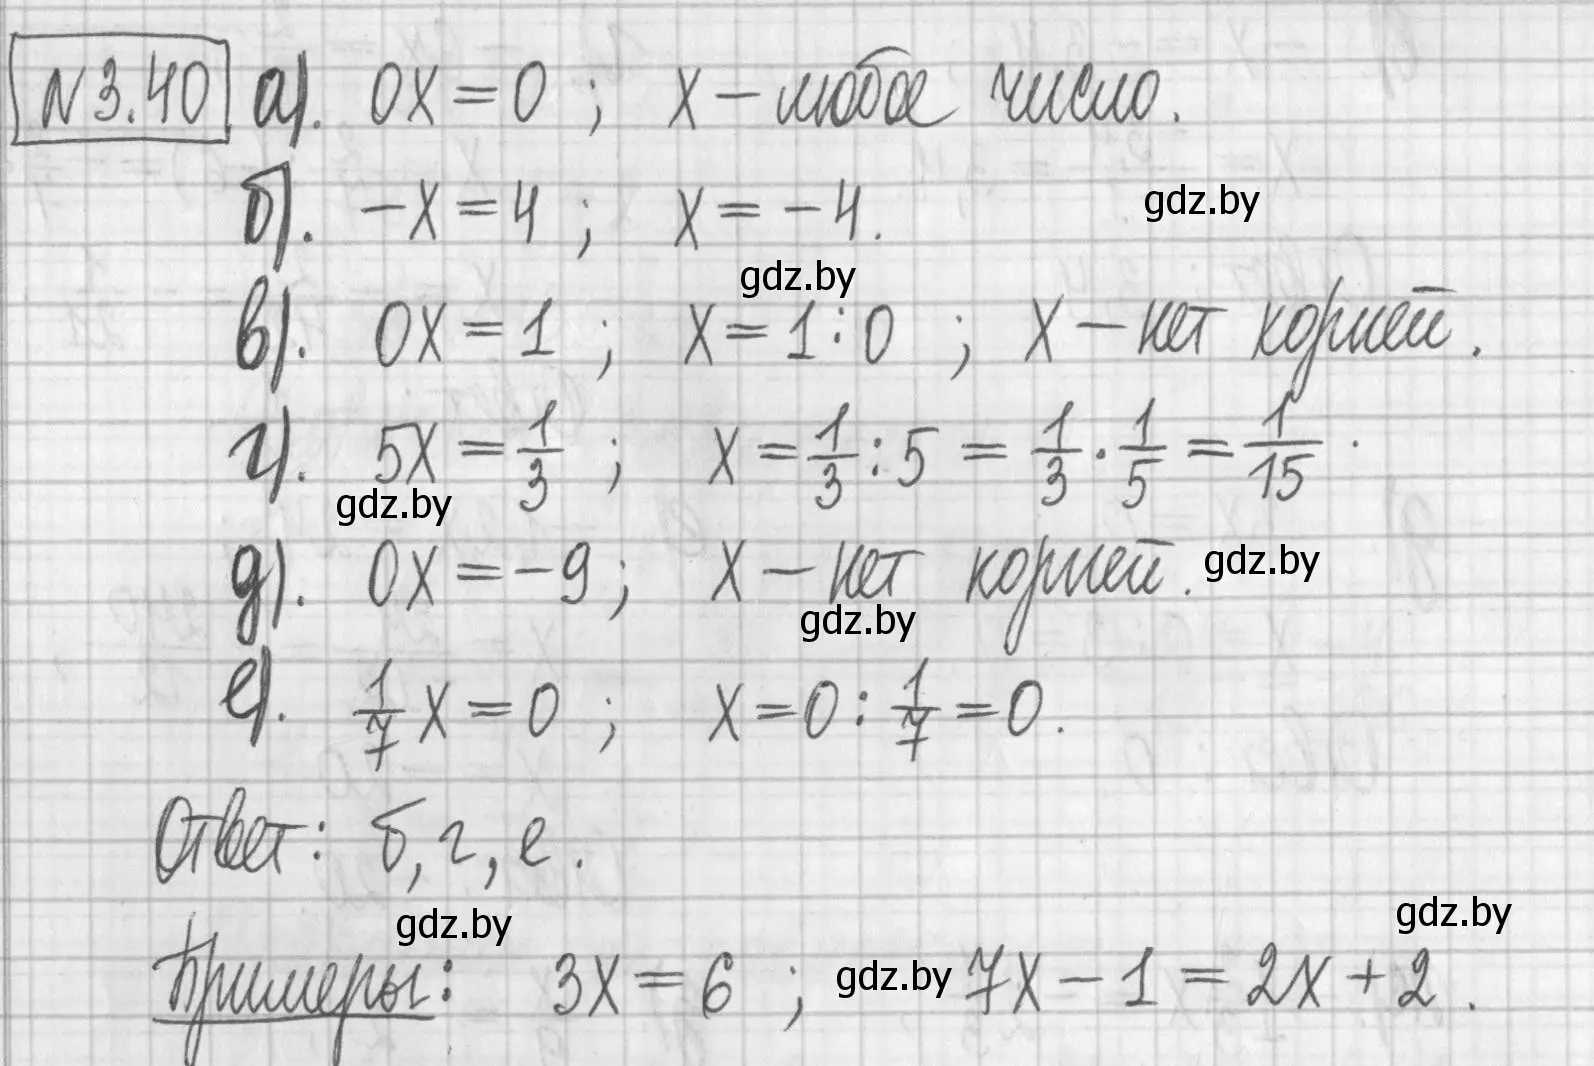 №3.40 а). 0x = 0 ; x – любое число.
б). –x = 4 ; x = –4. gdz.by
gdz.by
в). 0x = 1 ; x = 1 : 0 ; x – нет корней.
г). 5x = 1/3 ; x = 1/3 : 5 = 1/3 · 1/5 = 1/15 .
gdz.by
д). 0x = –9 ; x – нет корней. gdz.by
gdz.by
е). 1/7 x = 0 ; x = 0 : 1/7 = 0.
Ответ: б, г, е.
gdz.by gdz.by
Примеры: 3x = 6 ; gdz.by 7x – 1 = 2x + 2 .